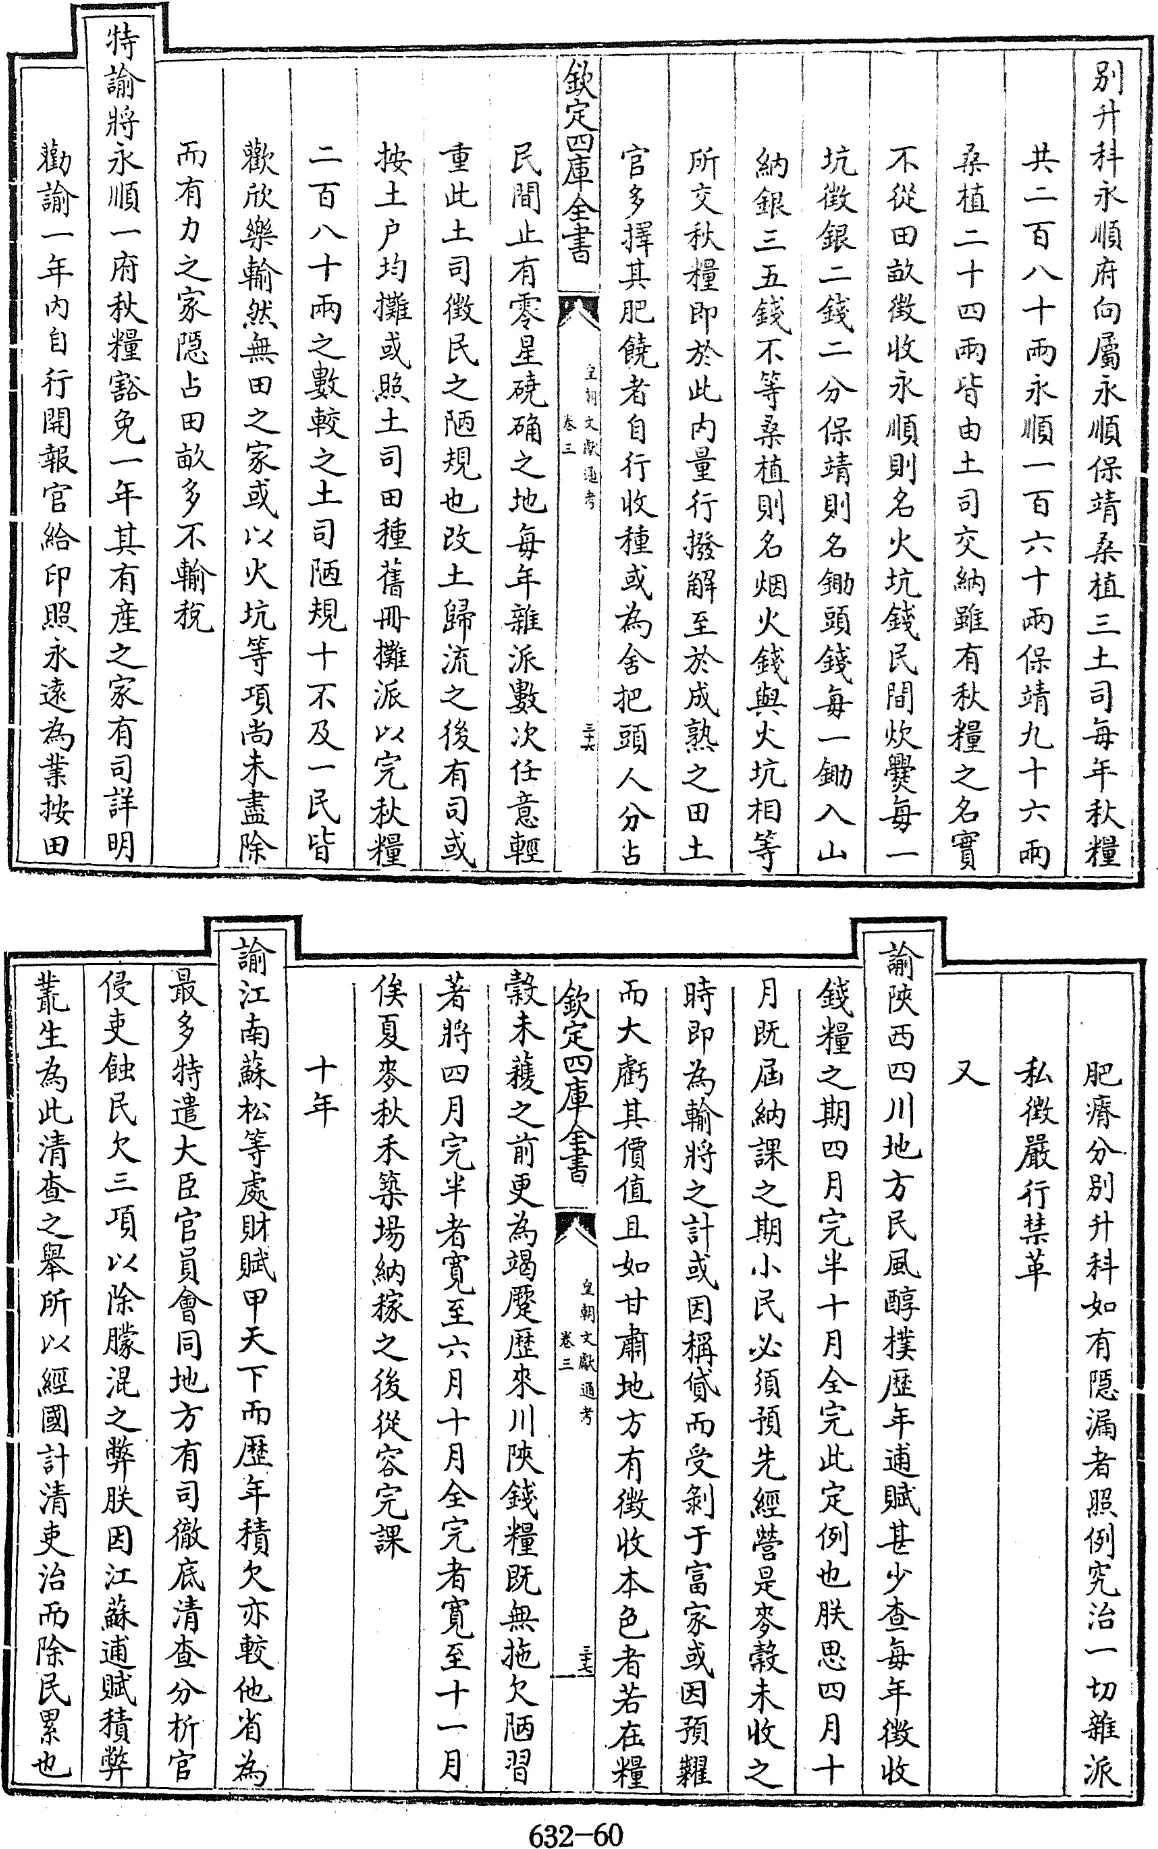 别升科永順府向屬永順保靖桑植三土司每年秋糧
共二百八十兩永順一百六十兩保靖九十六兩
桑植二十四兩皆由土司交納雖有秋糧之名實
不從田畝徵收永順則名火坑錢民間炊爨每一
坑徵銀二錢二分保靖則名鋤頭錢每一鋤入山
納銀三五錢不等桑植則名烟火錢與火坑相等
所交秋糧即於此内量行撥解至於成熟之田土
官多擇其肥饒者自行收種或為舍把頭人分占
欽定四庫全書
皇朝文獻通考
卷三
三十六
民間止有零星磽确之地每年雜派數次任意輕
重此土司徵民之陋規也改土歸流之後有司或
按土户均攤或照土司田種舊冊攤派以完秋糧
二百八十兩之數較之土司陋規十不及一民皆
歡欣樂輸然無田之家或以火坑等項尚未盡除
而有力之家隠占田畝多不輸稅
特諭將永順一府秋糧豁免一年其有産之家有司詳明
勸諭一年内自行開報官給印照永遠為業按田
肥瘠分别升科如有隠漏者照例究治一切雜派
私徵嚴行禁革
又
諭陜西四川地方民風醇樸歴年逋賦甚少查每年徵收
錢糧之期四月完半十月全完此定例也朕思四月十
月既屆納課之期小民必須預先經營是麥穀未收之
時即為輸將之計或因稱貸而受剝于富家或因預糶
而大虧其價值且如甘肅地方有徵收本色者若在糧
欽定四庫全書
皇朝文獻通考
卷三
三十七
穀未穫之前更為竭蹷歴來川陜錢糧既無拖欠陋習
著將四月完半者寛至六月十月全完者寛至十一月
俟夏麥秋禾築場納稼之後從容完課
十年
諭江南蘇松等處財賦甲天下而歴年積欠亦較他省為
最多特遣大臣官員會同地方有司徹底清查分析官
侵吏蝕民欠三項以除朦混之弊朕因江蘇逋賦積弊
叢生為此清查之舉所以經國計清吏治而除民累也
632-60